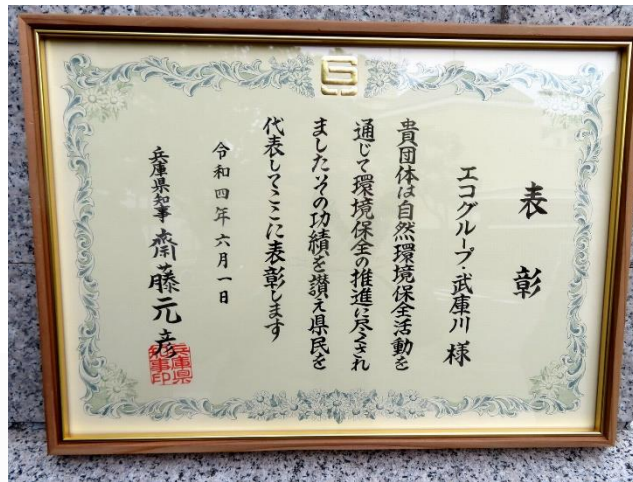 表彰
エコグループ・武庫川 様
貴団体は自然環境保全活動を
通じて環境保全の推進に尽くされ
ましたその功績を讃え県民を
代表してここに表彰します
令和四年六月一日
兵庫県知事 齋藤元彦
兵庫県知事印